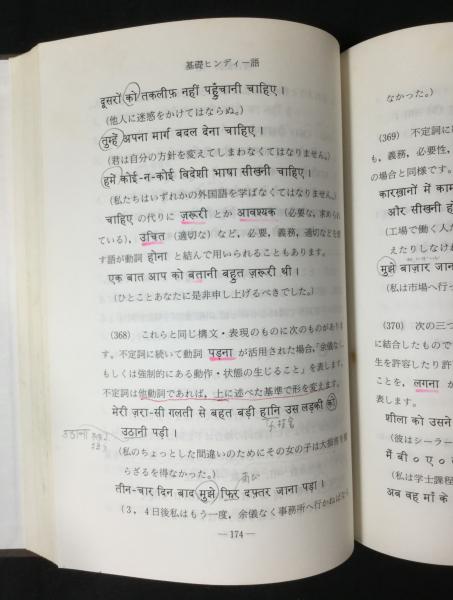 基礎ヒンディー語
दूसरों को तकलीफ़ नहीं पहुँचानी चाहिए।
(他人に迷惑をかけてはならぬ。)
तुम्हें अपना मार्ग बदल देना चाहिए।
(君は自分の方針を変えてしまわなくてはなりません。)
हमें कोई-न-कोई विदेशी भाषा सीखनी चाहिए।
(私たちはいずれかの外国語を学ばなくてはなりません。)
चाहिए の代りに ज़रूरी とか आवश्यक (必要な, 求められ
ている), उचित (適切な) など, 必要, 義務, 適切などを
す語が動詞 होना と結んで用いられることもあります。
एक बात आप को बतानी बहुत ज़रूरी थी।
(ひとことあなたに是非申し上げるべきでした。)
(368) これらと同じ構文・表現のものに次のものがありま
す。不定詞に続いて動詞 पड़ना が活用された場合, 「余儀なく
もしくは強制的にある動作・状態の生じること」を表します。
不定詞は他動詞であれば, 上に述べた基準で形を変えます。
मेरी ज़रा-सी गलती से बहुत बड़ी हानि उस लड़की को
उठाना
उठानी पड़ी।
(私のちょっとした間違いのためにその女の子は大損害を
らざるを得なかった。)
तीन-चार दिन बाद मुझे फिर दफ़्तर जाना पड़ा।
(3, 4日後私はもう一度, 余儀なく事務所へ行かねばなら
— 174 —
なかった。)
(369) 不定詞に
も, 義務, 必要性,
の場合と同様です。
कारख़ानों में काम
और सीखनी हो
(工場で働く人た
えたりしなけれ
मुझे बाज़ार जान
(私は市場へ行っ
(370) 次の三つ
に結合したもので
生を許容したり許
ことを, लगना が
表します。
शीला को उसने
(彼はシーラー
मैं बी० ए०
(私は学士課程
अब वह माँ के